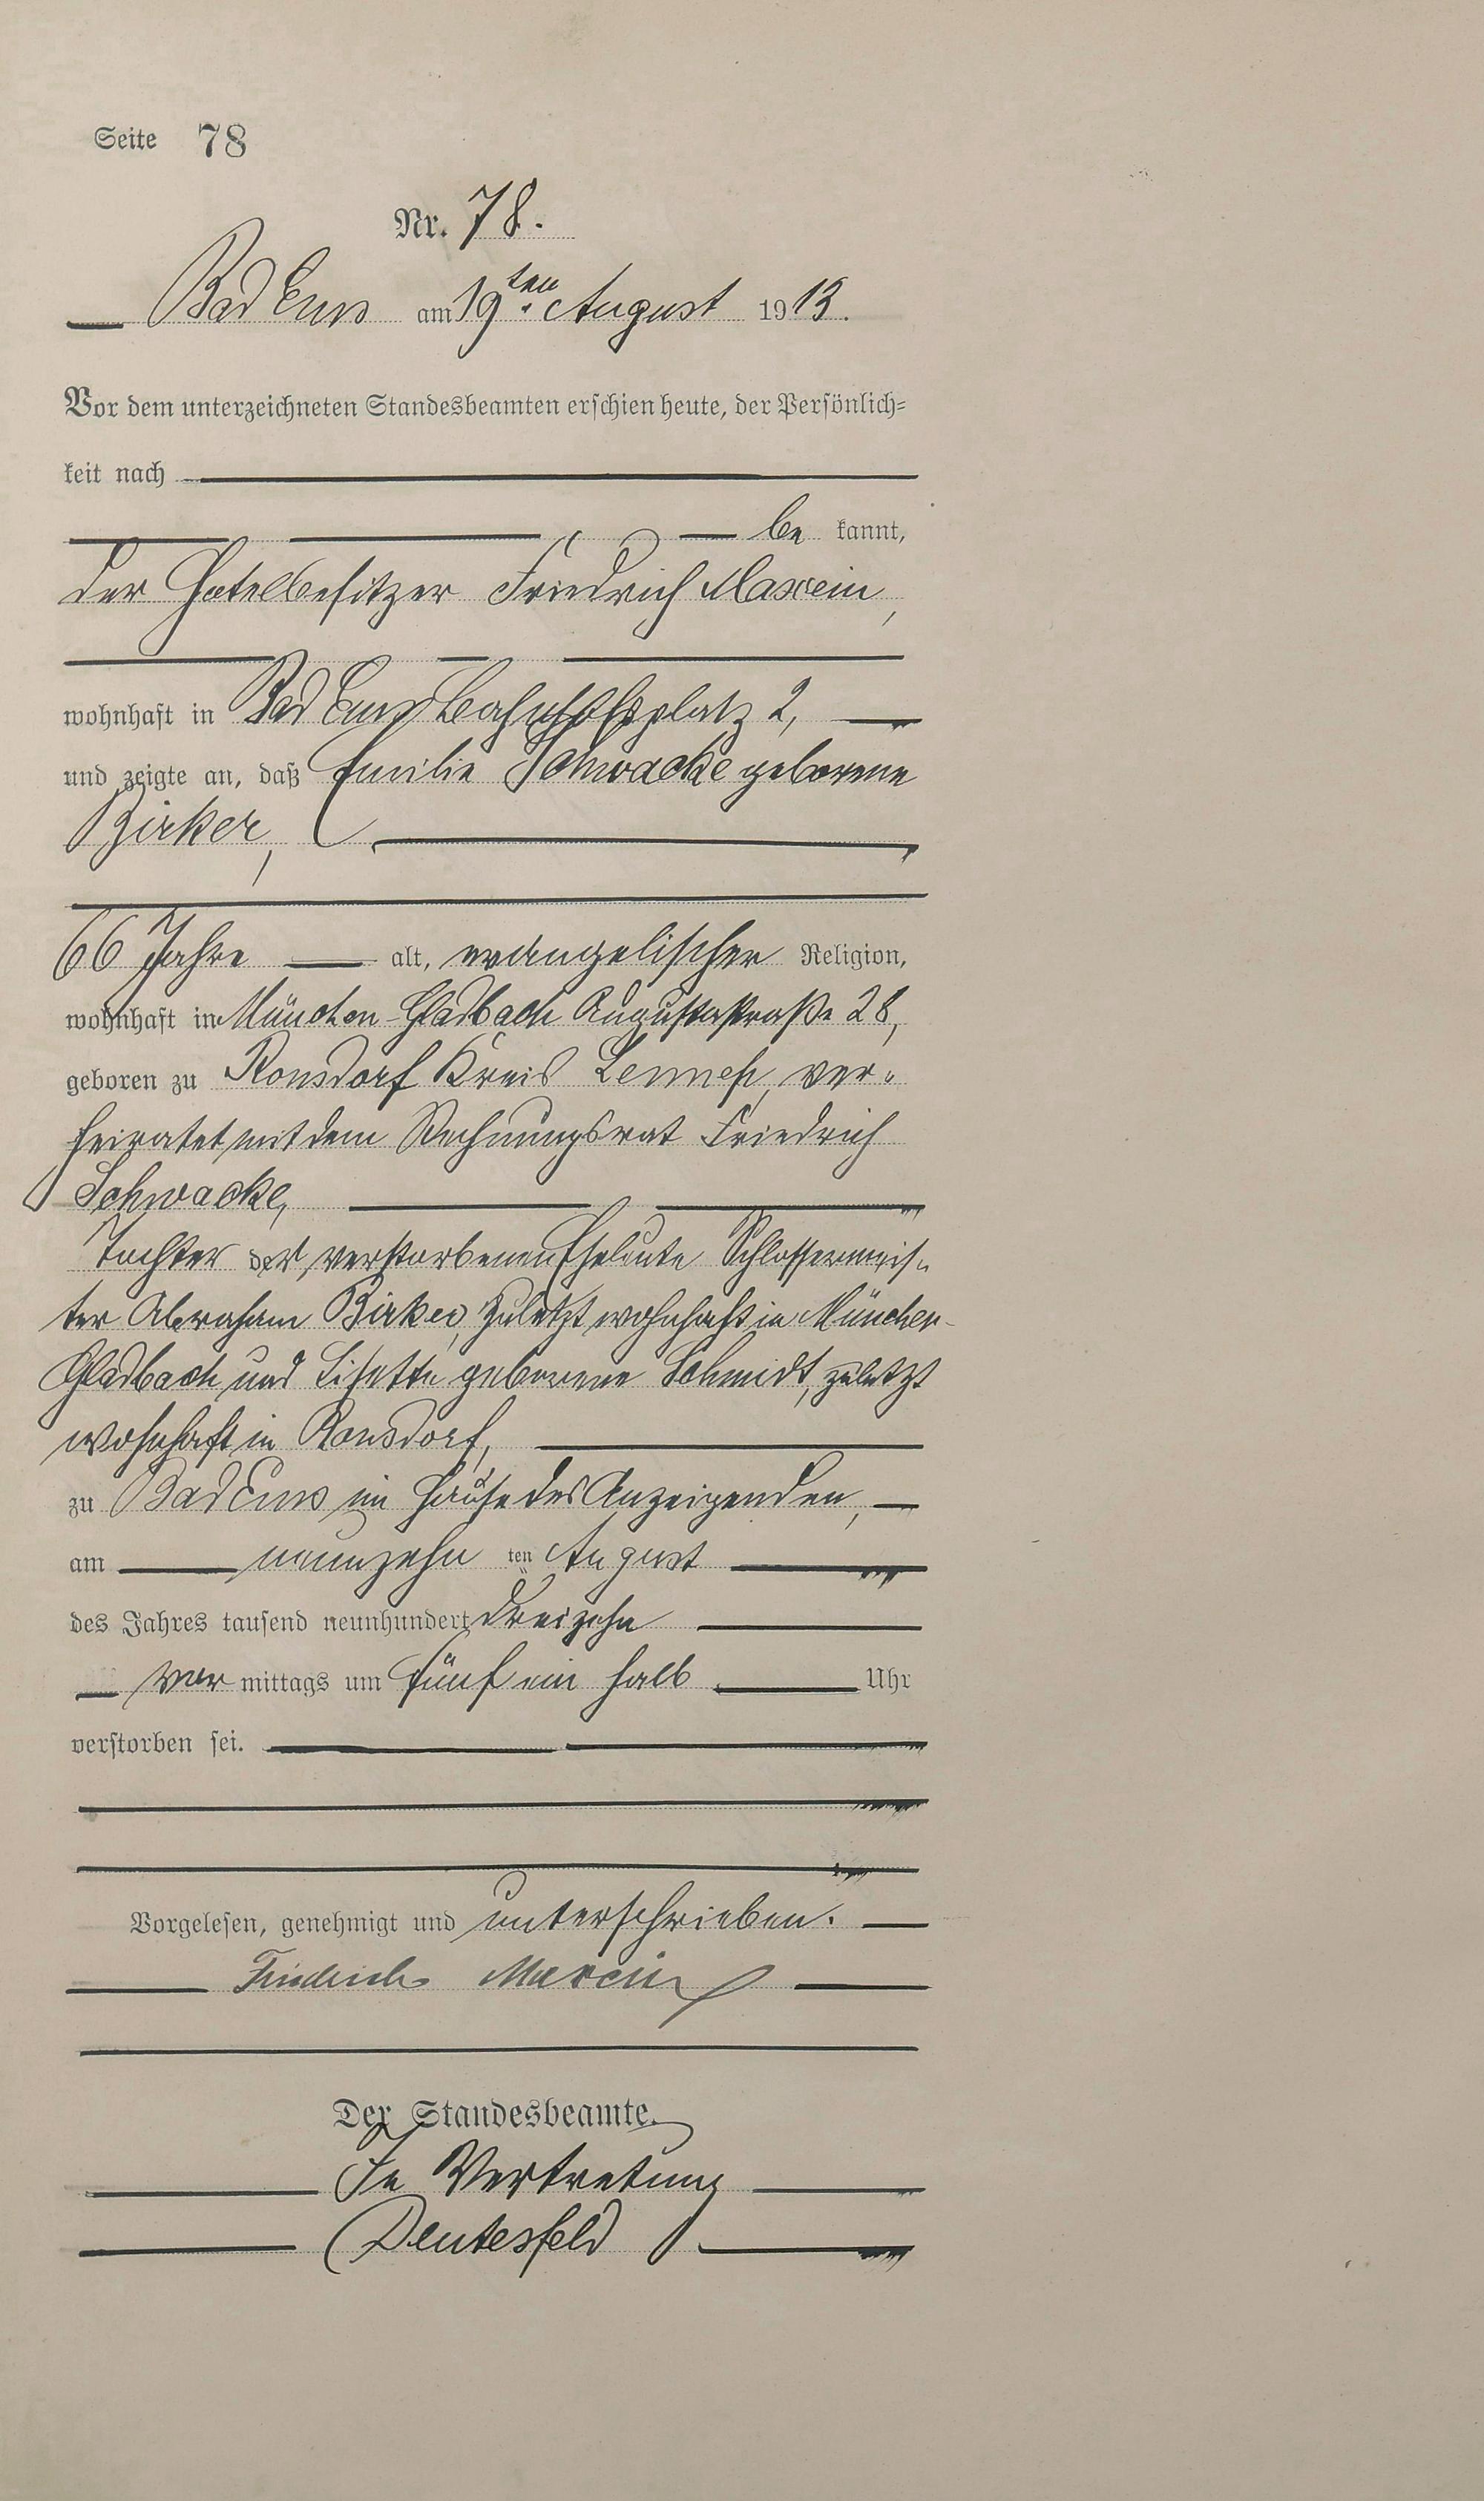 Seite 78
Nr. 78.
Bad Ems am 19ten August 1913.
Vor dem unterzeichneten Standesbeamten erschien heute, der Persönlich=
keit nach
be kannt,
der Hotelbesitzer Friedrich Maxein,
wohnhaft in Bad Ems Bahnhofsplatz 2,
und zeigte an, daß Emilie Schwacke geborene
Birker,
66 Jahre alt, evangelischer Religion,
wohnhaft in München-Gladbach Augustastraße 28,
geboren zu Ronsdorf Kreis Lennep, ver-
heiratet mit dem Rechnungsrat Friedrich
Schwacke,
Tochter der verstorbenen Eheleute Schlossermeis-
ter Abraham Birker, zuletzt wohnhaft in München-
Gladbach und Lisette geborene Schmidt, zuletzt
wohnhaft in Ronsdorf,
zu Bad Ems im Hause des Anzeigenden,
am neunzehn ten August
des Jahres tausend neunhundert dreizehn
vor mittags um fünf ein halb Uhr
verstorben sei.
Vorgelesen, genehmigt und unterschrieben.
Friedrich Maxein
Der Standesbeamte.
In Vertretung
Deutesfeld